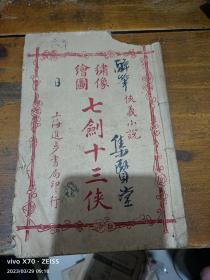 俠義小說
繡像
繪圖
七劍十三俠
上海進步書局印行
集賢堂
vivo X70・ZEISS
2023/03/29 09:16